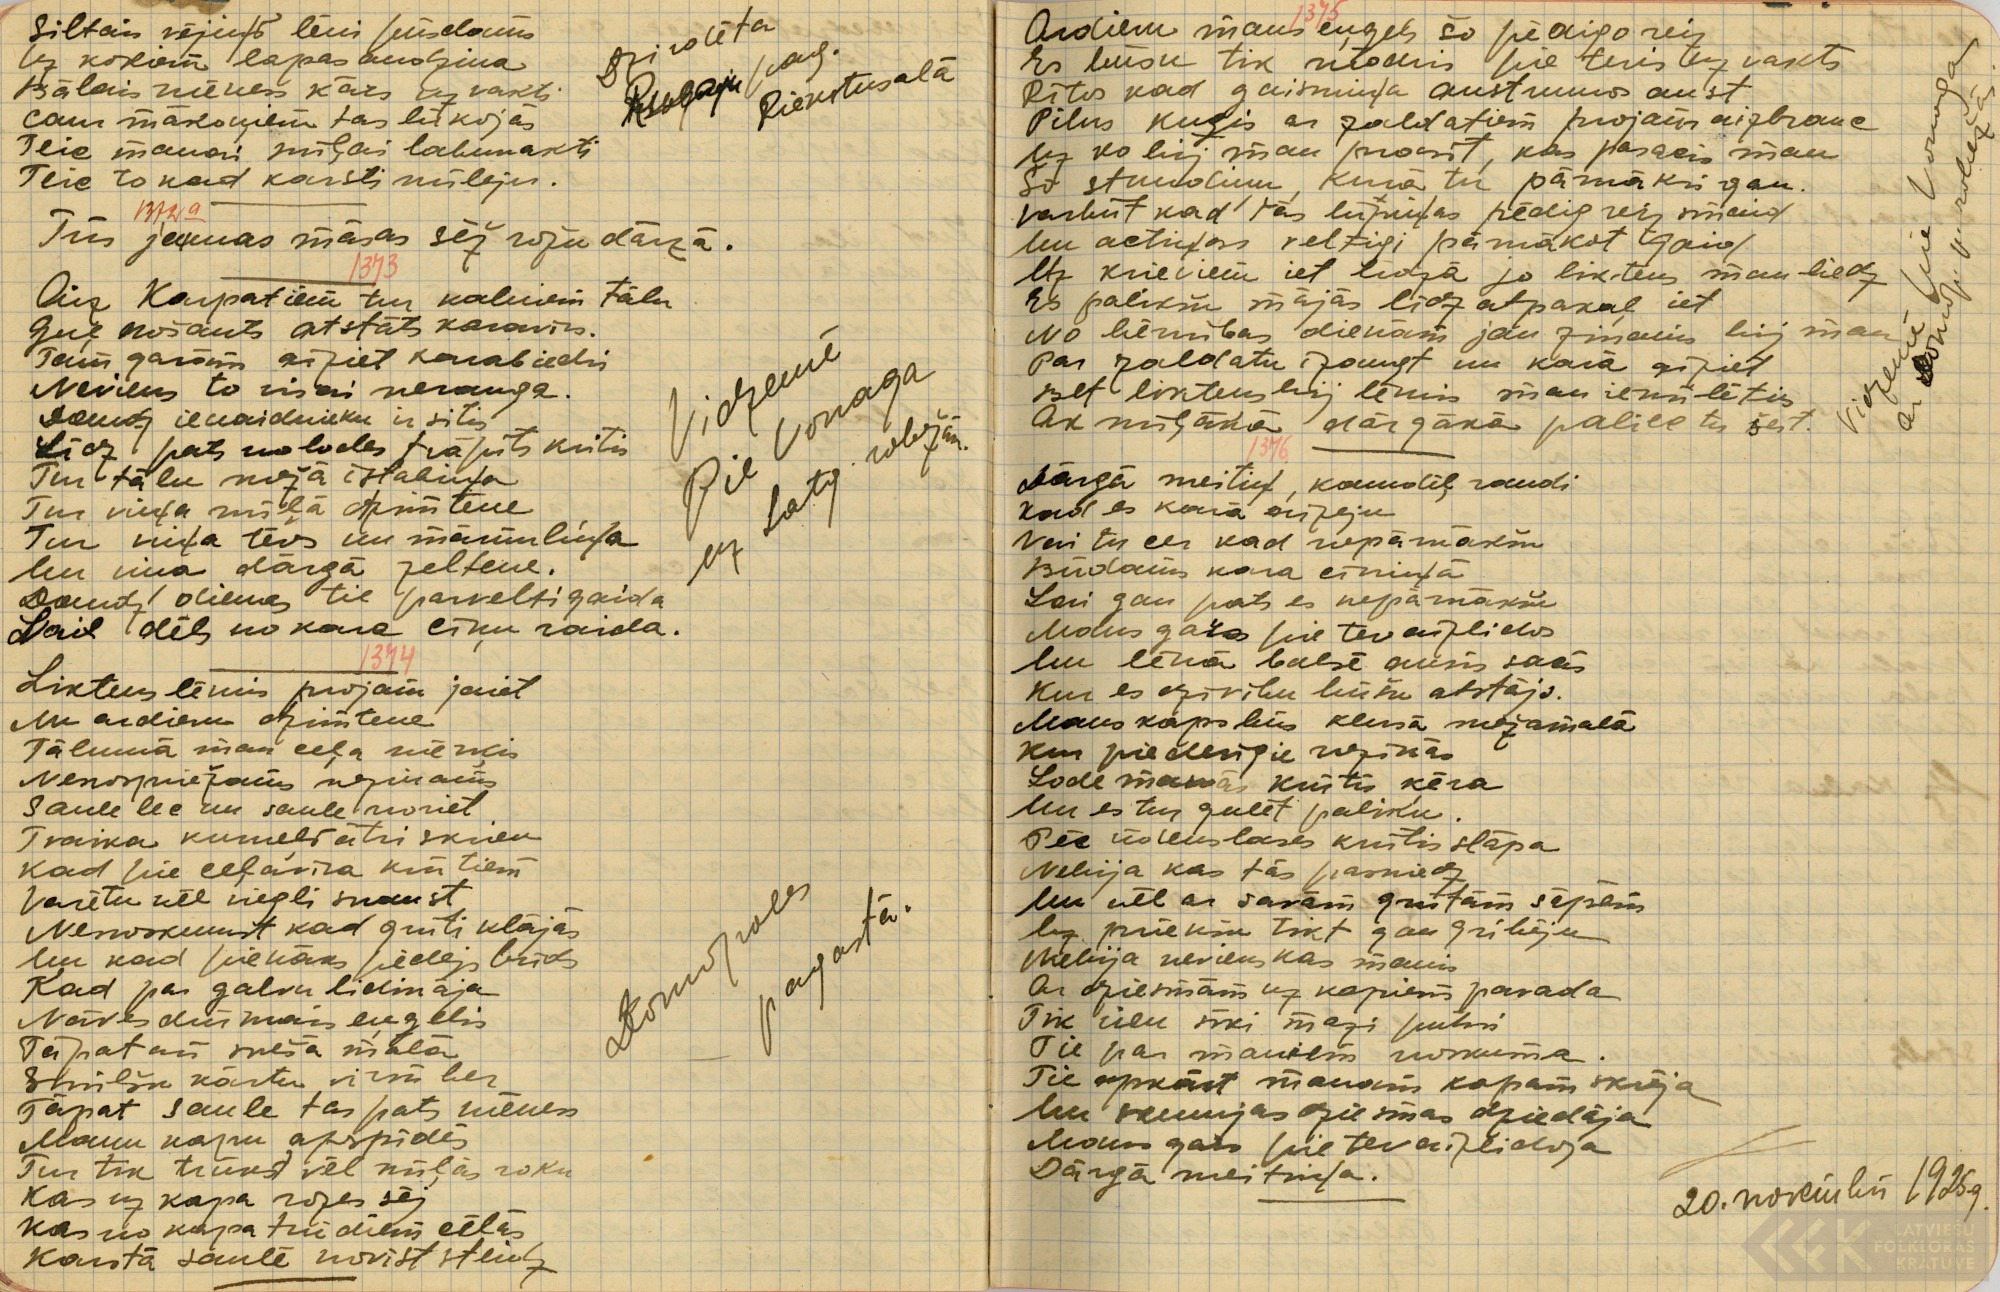 Siltais vējiņš lēni pūzdams
Uz kokiem lapas audzina
Bālais mēness kārs uz vakti
caur mākoņiem tas lūkojās
Teic manai mīļai labunakti
Teic to kad karsti mīleju.
Dziroleta
pag.
Riekstusalā
1372a
Trīs jaunas māsas sēž rožu dārzā.
1373
Aiz Karpatiem tur kalniem tālu
Guļ nošauts atstāts karavīrs.
Tam garām aiziet karabiedri
Neviens to visai neranga.
Daudz ienaidnieku ir sitis
Līdz pats no lodes trāpīts kritis
Tur tālu mežā istabiņa
Tur viņa mīļā dzimtene
Tur viņa tēvs un māmuliņa
Un viņa dārgā zeltene.
Daudz dienas tie parvelti gaida
Vaid dēls no kara cīņu raida.
Vidzemē
Pie Vonaga
uz Latg. robežām.
1374
Liktens lēmis projam jaiet
Nu ardievu dzimtene
Tālumā man ceļa mērķis
Nenospriežams nezinams
Saule lec un saule noriet
Traika kumeļš ātri skrien
Kad pie ceļavīra krūtiem
Varētu vēl viegli snaust
Nenoskumst kad grūti klājās
Un kad pienāks pēdejs brīds
Kad par galvu lidinaja
Nāves dūmais eņgelis
Tāpat arī svešā malā
Smilšu kārtu virsū ber
Tāpat saule tas pats mēness
Manu kapu apspīdēs
Tur tik trūkst vēl mīļās roku
Kas uz kapa rozes sēj
Kas no kapa trūdiem cēlās
Karstā saulē novīst steidz
Domopoles
pagastā.
1375
Ardievu mans eņgels šo pēdigo reiz
Es būšu tik modris pie tevis uz vakts
Rītos kad gaismiņa austrumos aust
Pilns kuģis ar zaldatiem projam aizbrauc
Uz ko bij man prasīt, kas pasacis man
Šo stundiņu, kurā tu pārnāksi gan.
varbūt kad tās lūpiņas pēdig reiz smaid
Un actiņas veltigi pārnākot gaid
Uz krieviem iet kaŗā jo liktens man liedz
Es palikšu mājās līdz atpakaļ iet
No bērnības dienām jau zinams bij man
Par zaldatu izaugt un karā aiziet
Bet liktens bij lēmis man iemīlēties
Ak mīļākā dārgākā paliec tu šeit.
Vidzemē pie Vonaga
1376
Dārgā meitiņ, kamdēļ raudi
Kad es karā aizeju
Vai tu cer kad nepārnākšu
Būdams kara cīniņā
Lai gan pats es nepārnākšu
Mans gars pie tev aizlidos
Un lēnā balsē ausīs sacīs
Kur es dzīvību būšu atstājs.
Mans kaps būs klusā mežamalā
Kur piederigie nezinās
Lode manās krūtīs ķēra
Un es tur gulēt paliku.
Pēc ūdenslases krūtis slāpa
Nebija kas tās pasniedz
Un vēl ar savām grūtām sāpēm
Uz priekšu tikt gan gribēju
Nebija neviens kas manis
Ar dziesmām uz kapiem pavada
Tik vien sīki mazi putni
Tie par maniem noskuma.
Tie apkārt manam kapam skrēja
Un skumjas dziesmas dziedāja
Mans gars pie tev aizlidoja
Dārgā meitiņa.
20. novembrī 1926g.
LATVIEŠU
FOLKLORAS
KRĀTUVE